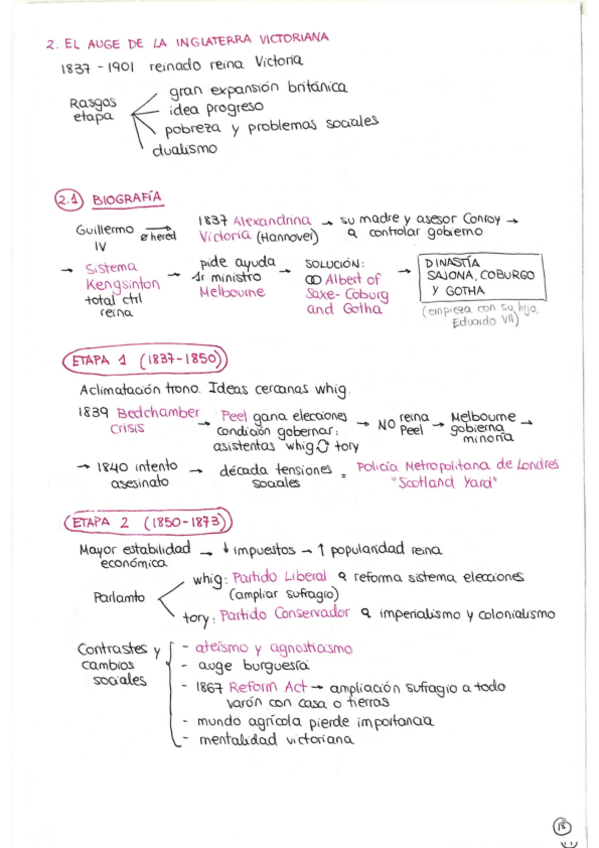 2. EL AUGE DE LA INGLATERRA VICTORIANA
1837 - 1901 reinado reina Victoria
Rasgos etapa
gran expansión británica
idea progreso
pobreza y problemas sociales
dualismo
2.1 BIOGRAFÍA
Guillermo IV → hered 1837 Alexandrina Victoria (Hannover) → su madre y asesor Conroy → controlar gobierno
→ Sistema Kengsinton total ctrl reina → pide ayuda 1r ministro Melbourne → SOLUCIÓN: Albert of Saxe-Coburg and Gotha → DINASTÍA SAJONA, COBURGO Y GOTHA
(empieza con su hijo, Eduardo VII)
ETAPA 1 (1837-1850)
Aclimatación trono. Ideas cercanas whig.
1839 Bedchamber Crisis → Peel gana elecciones condición gobernar: asistentas whig tory → NO reina Peel → Melbourne gobierna minoría →
→ 1840 intento asesinato → década tensiones sociales = Policía Metropolitana de Londres "Scotland Yard"
ETAPA 2 (1850-1873)
Mayor estabilidad económica → ↓ impuestos → ↑ popularidad reina
Parlamto
whig: Partido Liberal reforma sistema elecciones (ampliar sufragio)
tory: Partido Conservador imperialismo y colonialismo
Contrastes y cambios sociales
- ateísmo y agnostiasmo
- auge burguesía
- 1867 Reform Act → ampliación sufragio a todo varón con casa o tierras
- mundo agrícola pierde importancia
- mentalidad victoriana
18